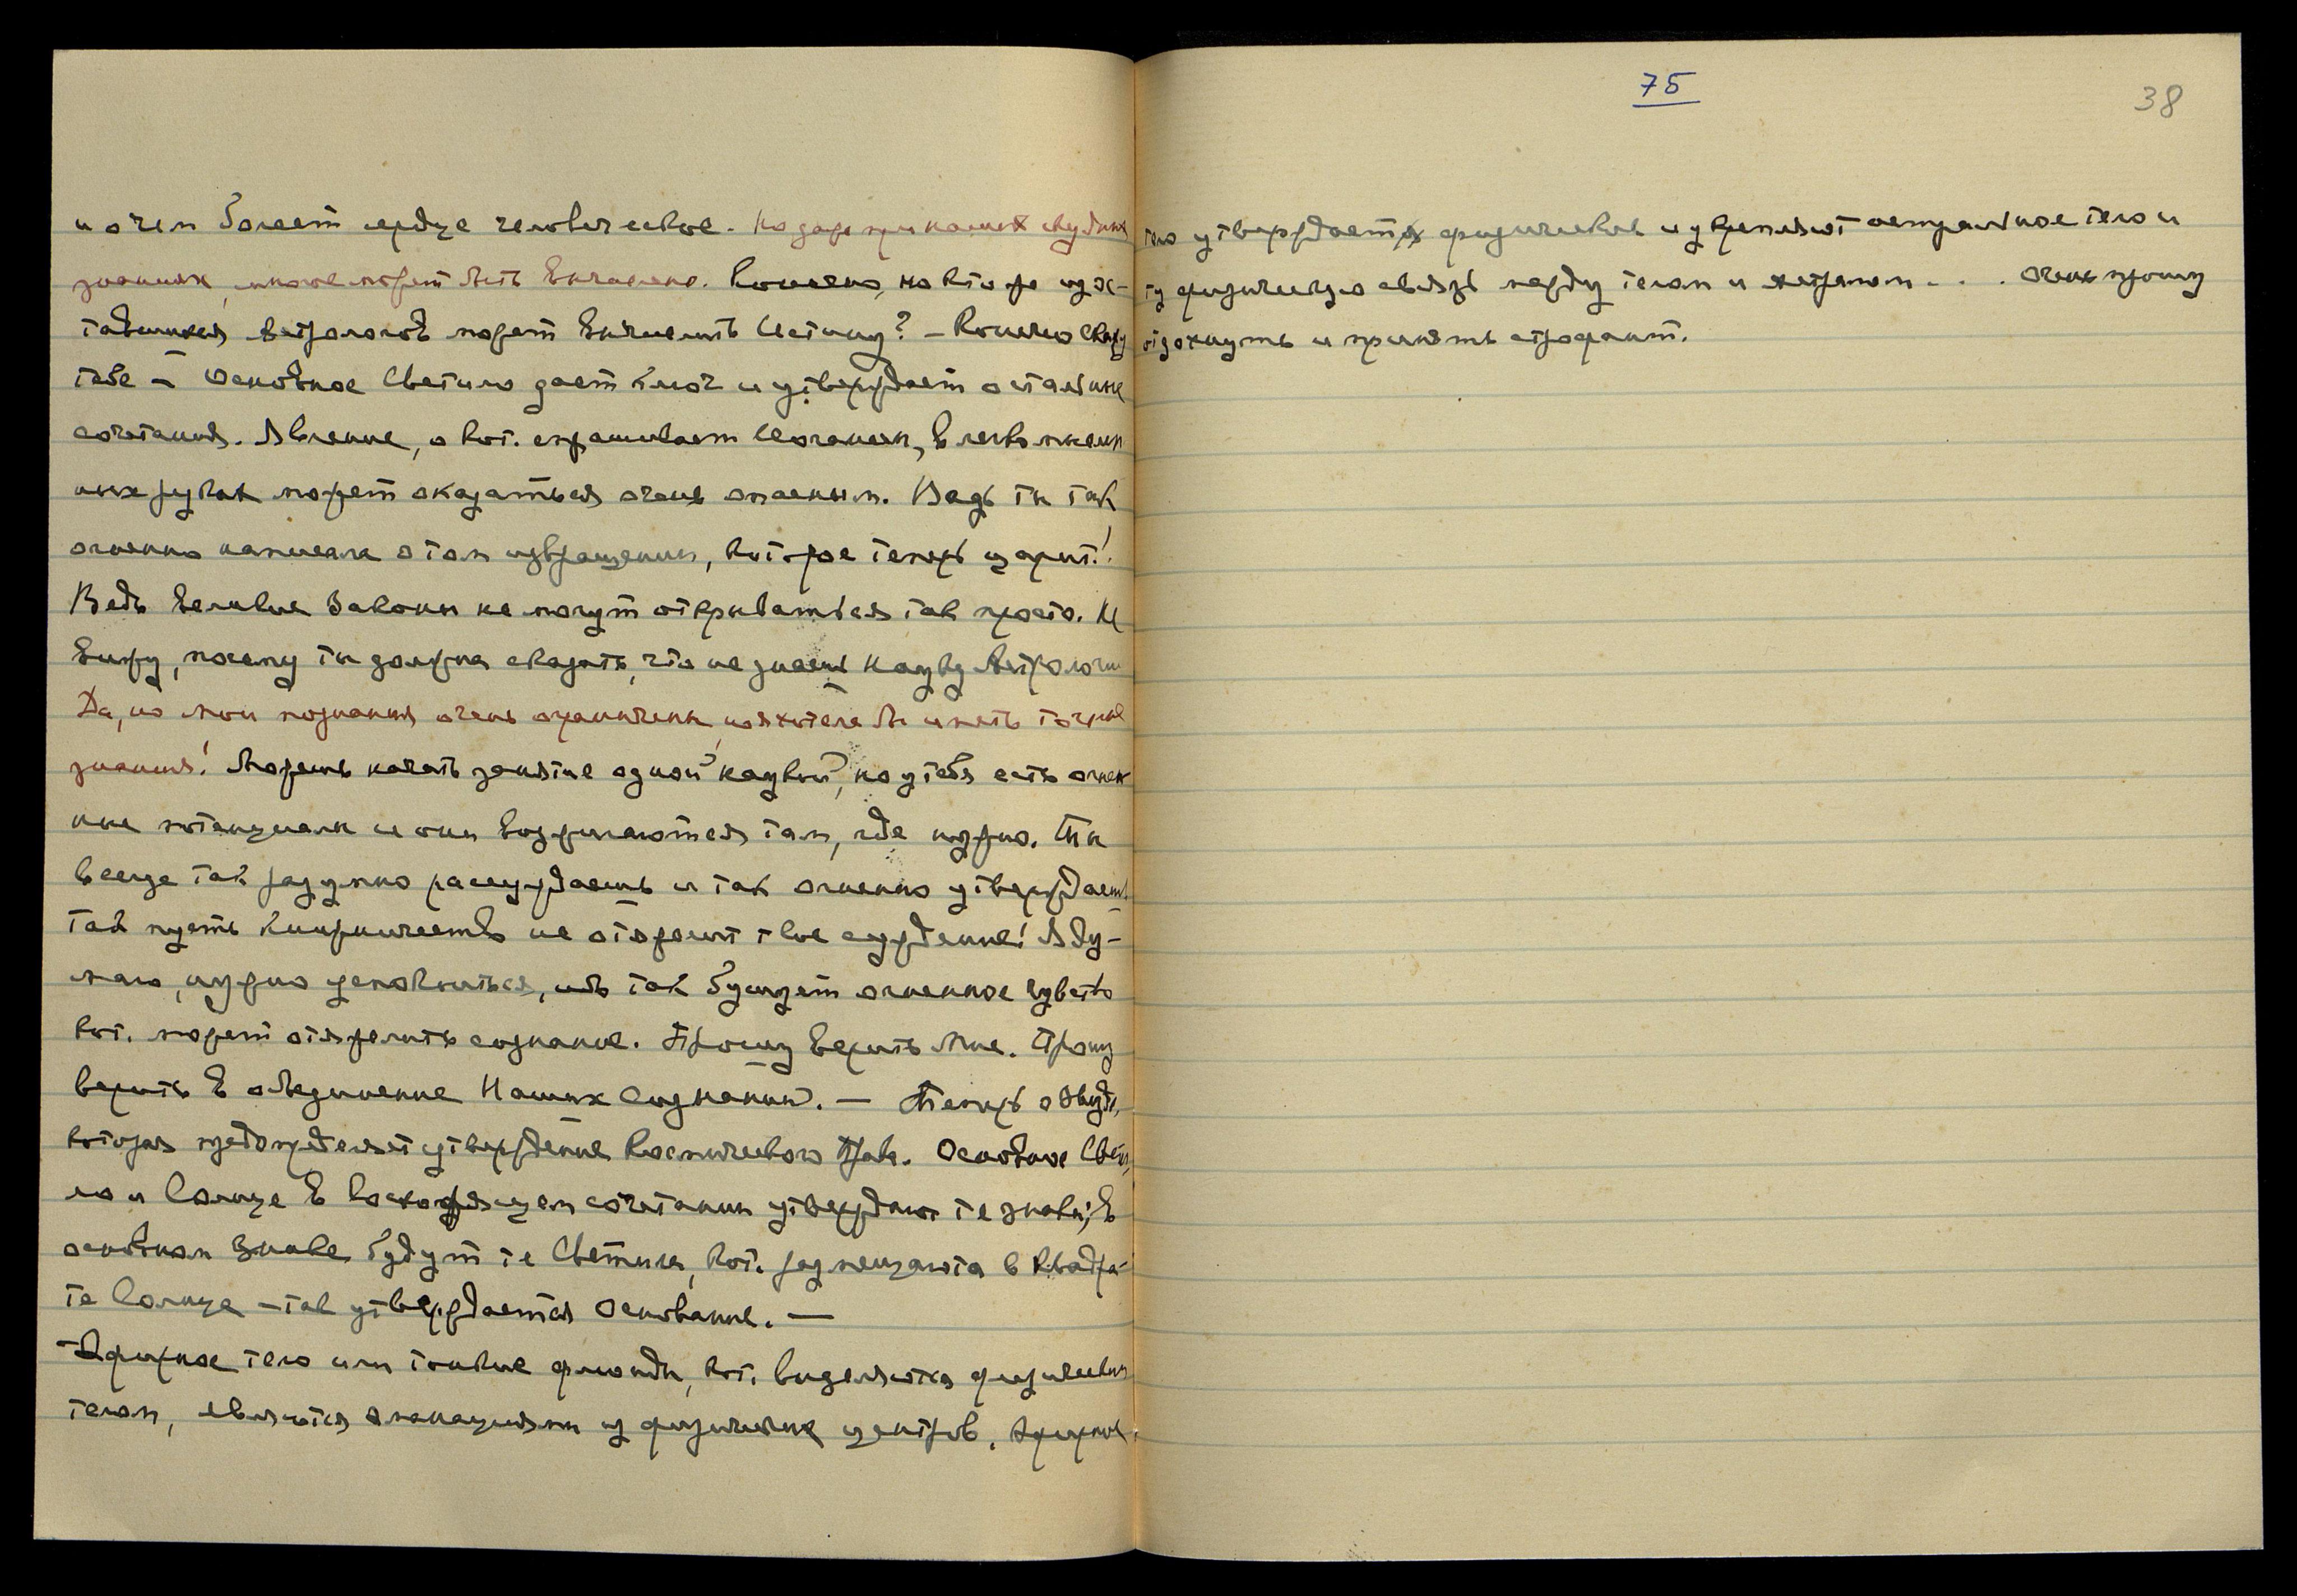 и о чем болеет сердце человеческое. Но даже при наших скудных
знаниях, многое может быть вычислено. Конечно, но кто же из ос-
тавшихся Астрологов может вычислить Истину? – Конечно скажу
тебе – Основное Светило дает ключ и утверждает остальные
сочетания. Явление, о кот. спрашивает
ных руках может оказаться очень опасным. Ведь ты так
огненно написала о том извращении, которое теперь царит!
Ведь великие Законы не могут открываться так просто. Я
вижу, почему ты должна сказать, что не знаешь Науку Астрологии
Да, но мои познания очень ограничены, но я хотела бы иметь точные
знания! Можешь начать занятие одной наукой, но у тебя есть огнен
ные потенциалы и они возжигаются там, где нужно. Ты
всегда так разумно рассуждаешь и так огненно утверждаешь.
Так пусть книжничество не отяжелит твое суждение! Я ду-
маю, нужно успокоиться, ибо так бушует огненное чувство
кот. может отяжелить сознание. Прошу верить Мне. Прошу
верить в объединение Наших Сознаний. – Теперь о Звезде,
которая предопределяет утверждение Космического Права. Основное Свети
ло и Солнце в восходящем сочетании утверждают те знаки; в
основном Знаке будут те Светила, кот. размещаются в квадра-
те Солнца – так утверждается Основание. –
Эфирное тело или тонкие флюиды, кот. выделяются физическим
телом, являются эманациями из физических центров. Эфирное
75
38
тело утверждает физическое и укрепляет астральное тело и
ту физическую связь между телом и астралом . . . Очень прошу
отдохнуть и принять строфант.